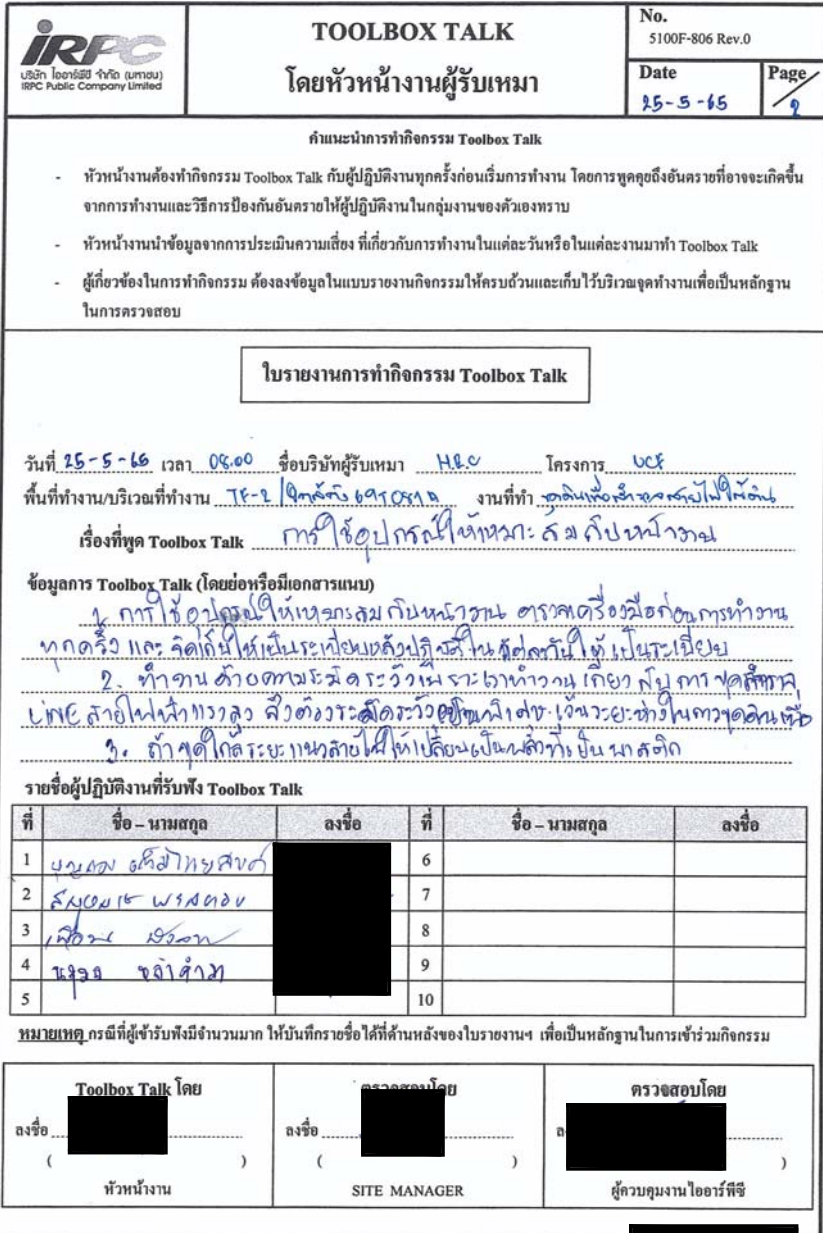 iRPC
บริษัท ไออาร์พีซี จำกัด (มหาชน)
IRPC Public Company Limited
TOOLBOX TALK
โดยหัวหน้างานผู้รับเหมา
No.
5100F-806 Rev.0
Date
25-5-65
Page
2
คำแนะนำการทำกิจกรรม Toolbox Talk
- หัวหน้างานต้องทำกิจกรรม Toolbox Talk กับผู้ปฏิบัติงานทุกครั้งก่อนเริ่มการทำงาน โดยการพูดคุยถึงอันตรายที่อาจจะเกิดขึ้น
จากการทำงานและวิธีการป้องกันอันตรายให้ผู้ปฏิบัติงานในกลุ่มงานของตัวเองทราบ
- หัวหน้างานนำข้อมูลจากการประเมินความเสี่ยง ที่เกี่ยวกับการทำงานในแต่ละวันหรือในแต่ละงานมาทำ Toolbox Talk
- ผู้เกี่ยวข้องในการทำกิจกรรม ต้องลงข้อมูลในแบบรายงานกิจกรรมให้ครบถ้วนและเก็บไว้บริเวณจุดทำงานเพื่อเป็นหลักฐาน
ในการตรวจสอบ
ใบรายงานการทำกิจกรรม Toolbox Talk
วันที่ 25-5-65 เวลา 08.00 ชื่อบริษัทผู้รับเหมา โครงการ UCF
พื้นที่ทำงาน/บริเวณที่ทำงาน TF-2 / งานที่ทำ ขุดดินเพื่อสำรวจสายไฟใต้ดิน
เรื่องที่พูด Toolbox Talk การใช้อุปกรณ์ให้เหมาะสมกับหน้างาน
ข้อมูลการ Toolbox Talk (โดยย่อหรือมีเอกสารแนบ)
1. การใช้อุปกรณ์ให้เหมาะสมกับหน้างาน ตรวจเครื่องมือก่อนการทำงาน
ทุกครั้ง และ จัดเก็บให้เป็นระเบียบหลังปฏิบัติในแต่ละวันให้เป็นระเบียบ
2. ทำงานด้วยความระมัดระวังเพราะเราทำงานเกี่ยวกับการขุดสำรวจ
LINE สายไฟฟ้าแรงสูง จึงต้องระมัดระวัง เว้นระยะห่างในการขุดดิน
3. ถ้าขุดใกล้ระยะแนวสายไฟให้เปลี่ยนเป็นพลั่วที่เป็นพาสติก
รายชื่อผู้ปฏิบัติงานที่รับฟัง Toolbox Talk
ที่ ชื่อ – นามสกุล ลงชื่อ ที่ ชื่อ – นามสกุล ลงชื่อ
1 6
2 7
3 8
4 9
5 10
หมายเหตุ กรณีที่ผู้เข้ารับฟังมีจำนวนมาก ให้บันทึกรายชื่อได้ที่ด้านหลังของใบรายงานฯ เพื่อเป็นหลักฐานในการเข้าร่วมกิจกรรม
Toolbox Talk โดย
ลงชื่อ
( )
หัวหน้างาน
ตรวจสอบโดย
ลงชื่อ
( )
SITE MANAGER
ตรวจสอบโดย
)
ผู้ควบคุมงานไออาร์พีซี